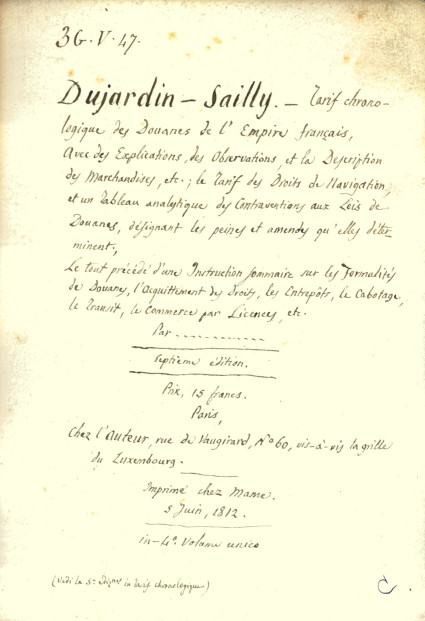 3G. V. 47.
Dujardin - Sailly. - Tarif chrono-
logique des Douanes de l'Empire français,
Avec des Explications, des Observations, et la Description
des Marchandises, etc.; le Tarif des Droits de Navigation;
et un Tableau analytique des Contraventions aux Lois de
Douanes, désignant les peines et amendes qu'elles déter
minent.;
Le tout précédé d'une Instruction sommaire sur les Formalités
de Douanes, l'Acquittement des Droits, les Entrepôts, le Cabotage,
le Transit, le Commerce par Licences, etc.
Par
Septième édition.
Prix, 15 francs.
Paris,
Chez l'Auteur, rue de Vaugirard, No 60, vis-à-vis la grille
du Luxembourg.
Imprimé chez Mame.
5 Juin, 1812.
in-4º. Volume unico
(Vedi la 5ª in Tarif chronologique)
C